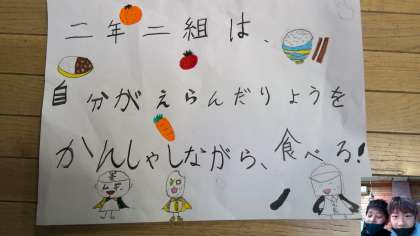 二年二組は、
自分がえらんだりょうを
かんしゃしながら、食べる!